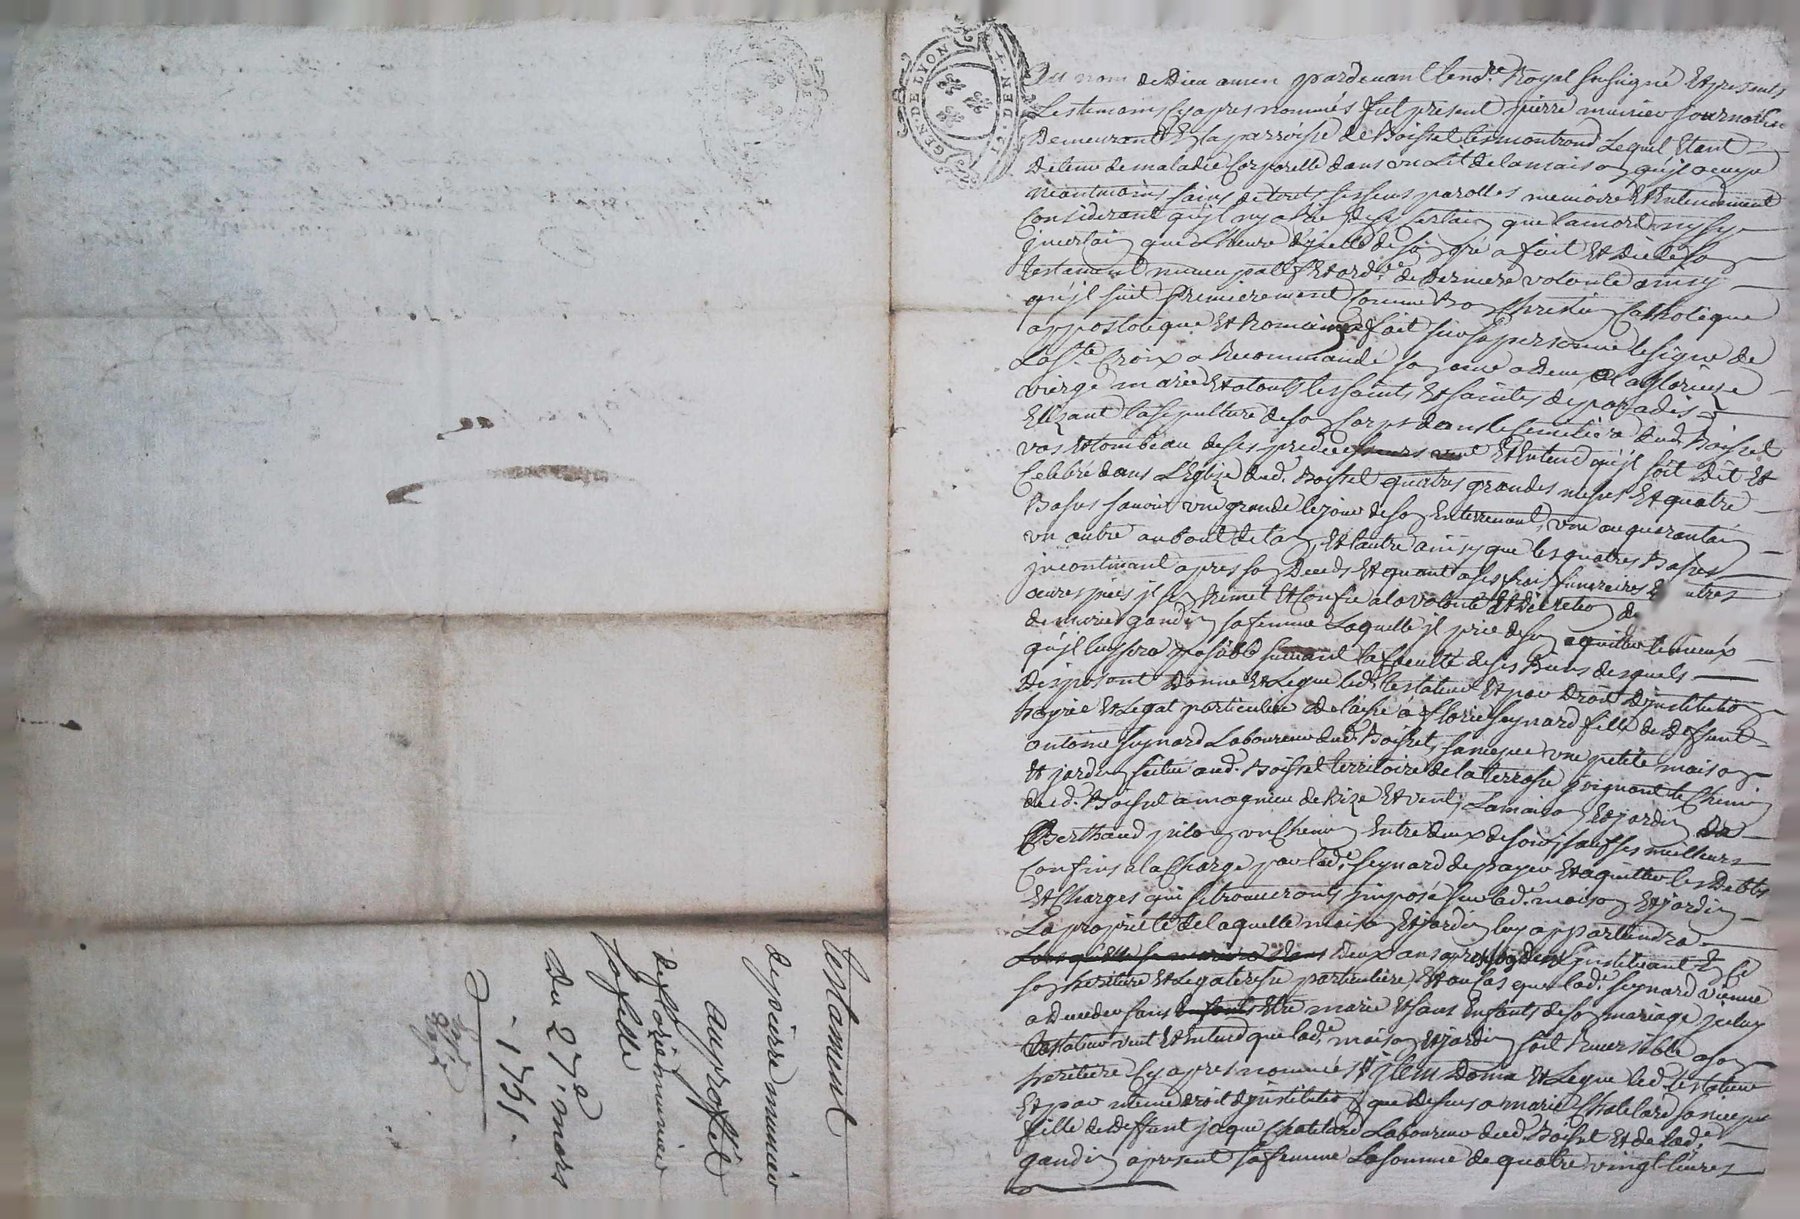 GEN. DE LYON
Au nom de Dieu amen pardevant le no.re Royal soussigné Et presents
Les temoins Cy apres nommés fut present pierre munier journallier
Demeurant En la parroisse de Boisset les montrond Lequel Etant
Detenu de maladie Corporelle dans un Lit de la maison qu'jl occupe
neantmoins sains de touts ses sens parolles memoire Et Entendement
Considerant qu'jl ny a rien de sy certain que la mort ny sy
jncertain que L'heure d'jcelle de son gré a fait Et Dicté son
testament nuncupatif Et ord.ce de Derniere volonté ainsy
qu'jl suit premierement Comme Bon Chretien Catholique
appostolique Et Romain a fait sur sa personne le signe de
La S.te Croix a Recommandé son ame a Dieu a la glorieuze
vierge marie Et a touts les saints Et saintes de paradis
Elizant la sepulture de son Corps dans le Cemetiere dud. Boisset
vas Et tombeau de ses predecesseurs veut Et Entend qu'jl soit Dit Et
Celebré dans L'Eglize dud. Boisset quattres grandes messes Et quatre
Basses savoir une grande le jour de son Enterrement, une au quarantain
un autre au bout de l'an, Et l'autre ainsy que les quattres Basses
jncontinant apres son Deceds Et quant a ses frais funeraires Et autres
œuvres pies jl s'en Remet Et Confie a la volonté Et Discretion de
de marie gandin sa femme Laquelle jl prie de s'en aquitter le mieux
qu'jl luy sera possible suivant la faculté de ses Biens desquels
Disposant Donne Et Legue led. testateur Et par Droit D'jnstitution
hoyrie Et Legat particulier Delaissé a florie seynard fille de Deffunt
antoine seynard Laboureur dud. Boisset, sa niepce une petite maison
Et jardin scitué aud. Boisset territoire de la terrasse joignant le Chemin
dud. Boisset a magnieu de Bize Et vent, La maison Et jardin de
Berthaud piton un Chemin Entre deux de soir, sauf ses meilleurs
Confins a la Charge par lad.e seynard de payer Et aquitter les Debtes
Et Charges qui se trouveronts jmposé sur lad.e maison Et jardin
La proprieté de laquelle maison Et jardin luy appartiendra
Lors qu'elle se mariera Deux ans apres L'jnstituant En Ce
son heritiere Et Legateresse particuliere, Et au Cas que lad.e seynard vienne
a Deceder sans Etre marié Et sans Enfants de son mariage jceluy
testateur veut Et Entend que lad.e maison Et jardin soit Reversible a son
heritiere Cy apres nommée Jtem Donne Et Legue led. testateur
Et par meme droit d'jnstitution que dessus a marie Chatelard sa niepce
fille de deffunt jaque Chatelard Laboureur dud. Boisset Et de lad.e
gandin apresent sa femme La somme de quatre vingt livres
testament
de pierre munier
au proffit
de florie munier
du 27.e mars
1751.